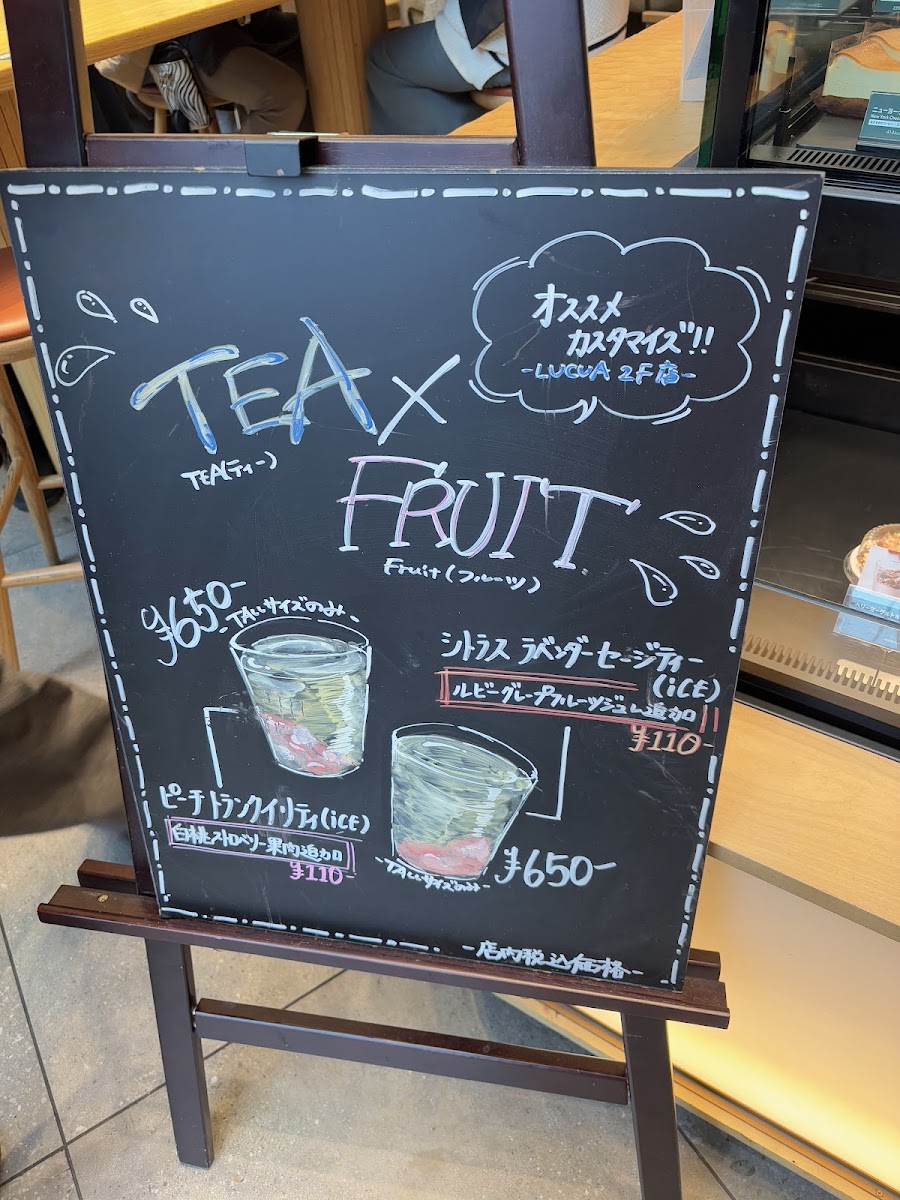 オススメ
カスタマイズ!!
-LUCUA 2F店-
TEA×
TEA(ティー)
FRUIT
Fruit(フルーツ)
¥650-
-TALLサイズのみ-
シトラス ラベンダーセージティー
(iCE)
ルビーグレープフルーツジュレ追加
¥110-
ピーチ トランクイリティ(iCE)
白桃ストロベリー果肉追加
¥110-
-TALLサイズのみ-
¥650-
-店内税込価格-